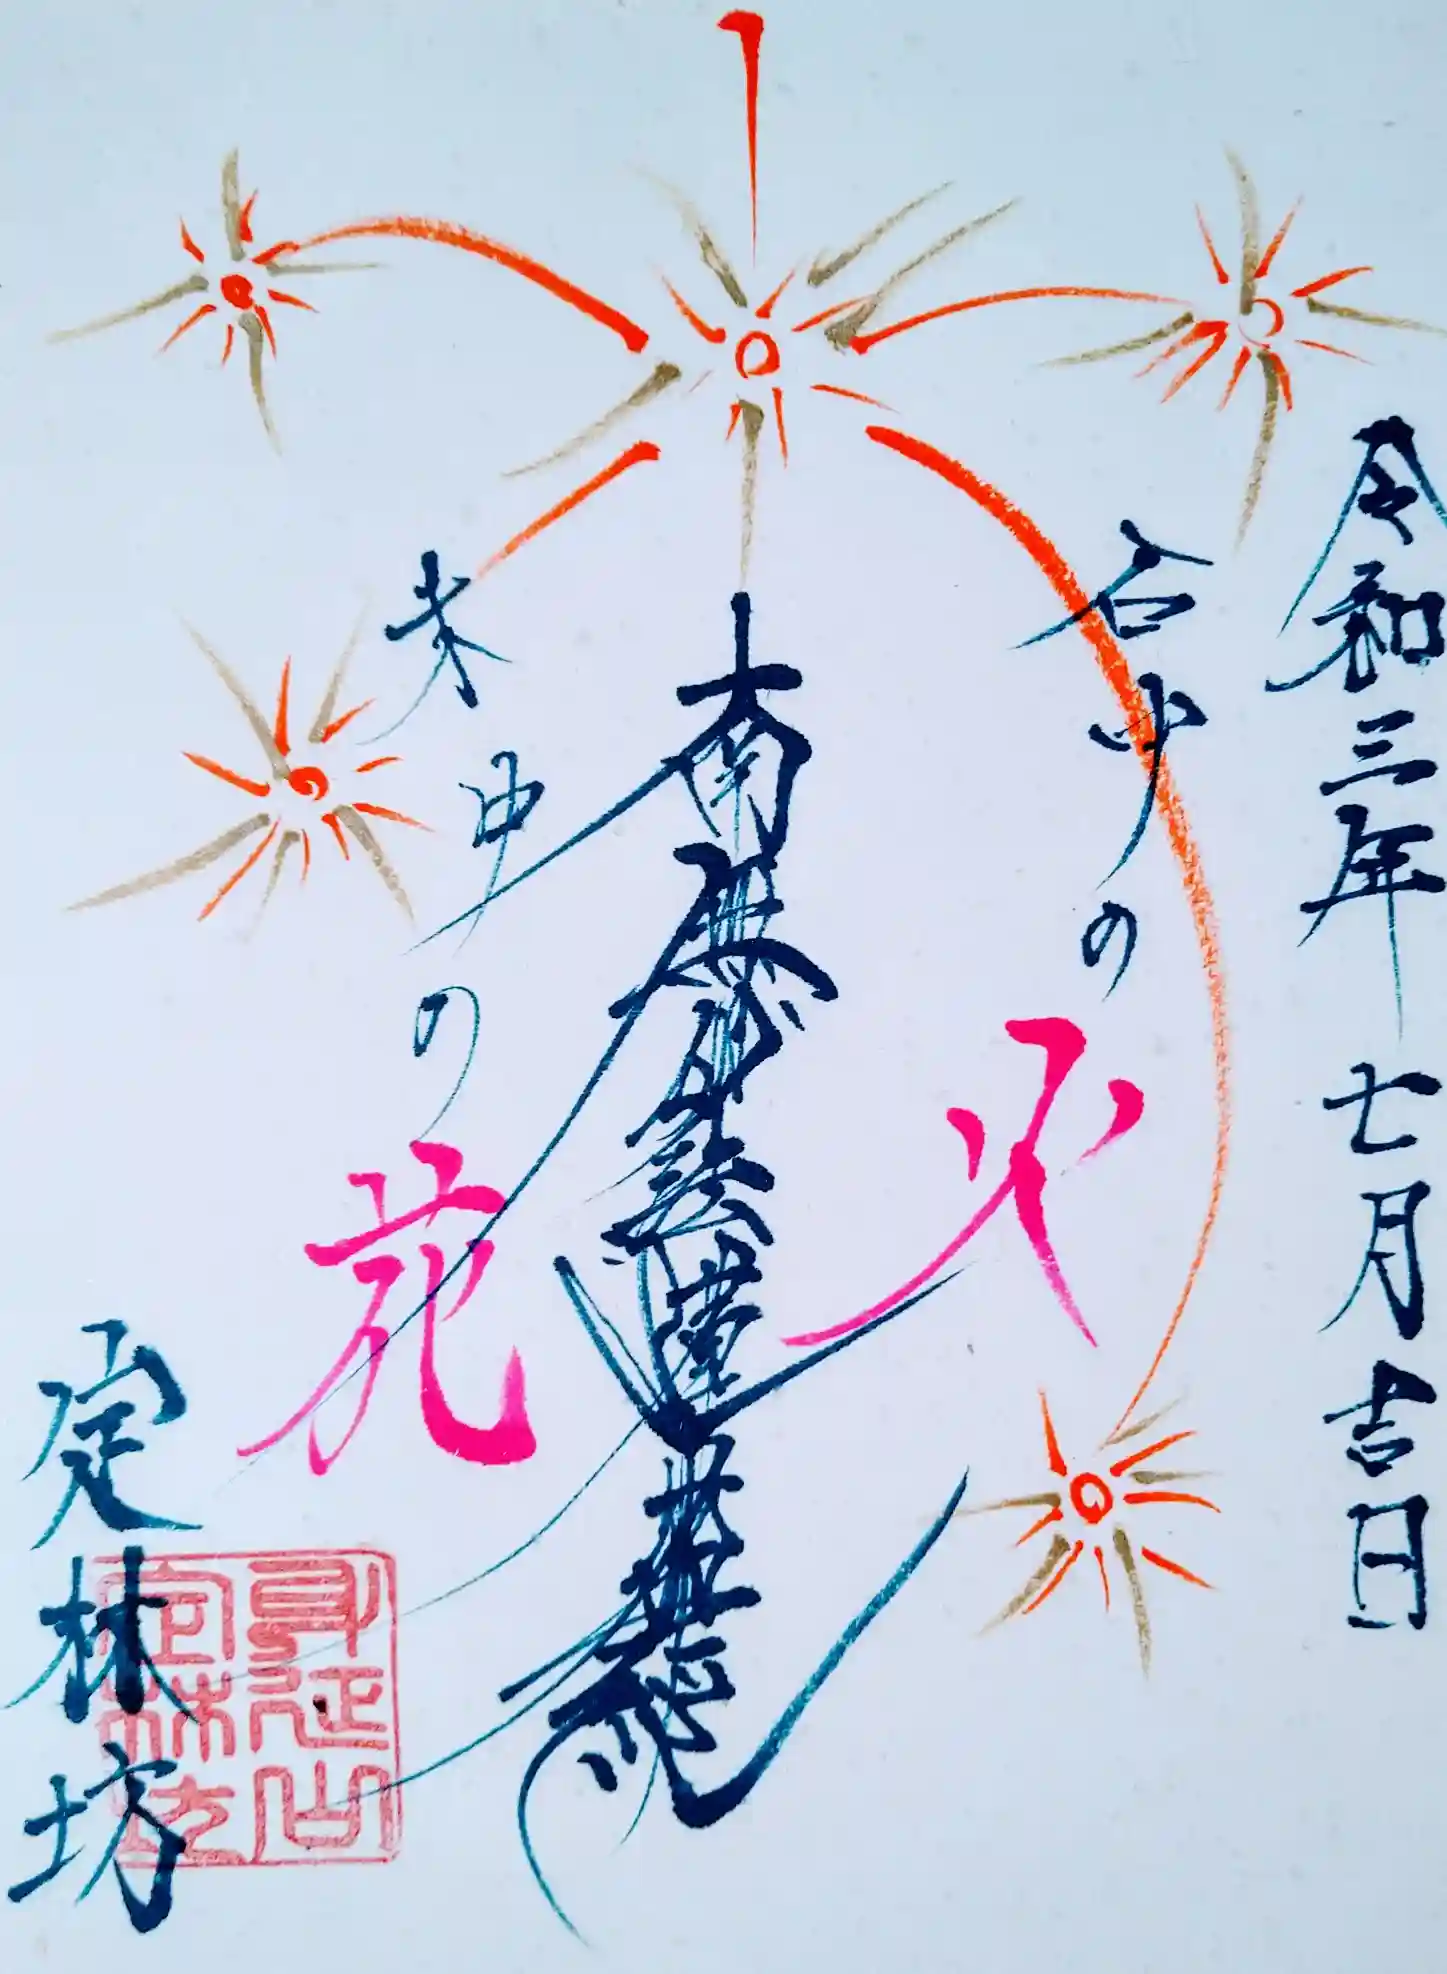 令和三年七月吉日
石中の火
南無妙法蓮華經
木中の花
定林坊
身延山
定林坊